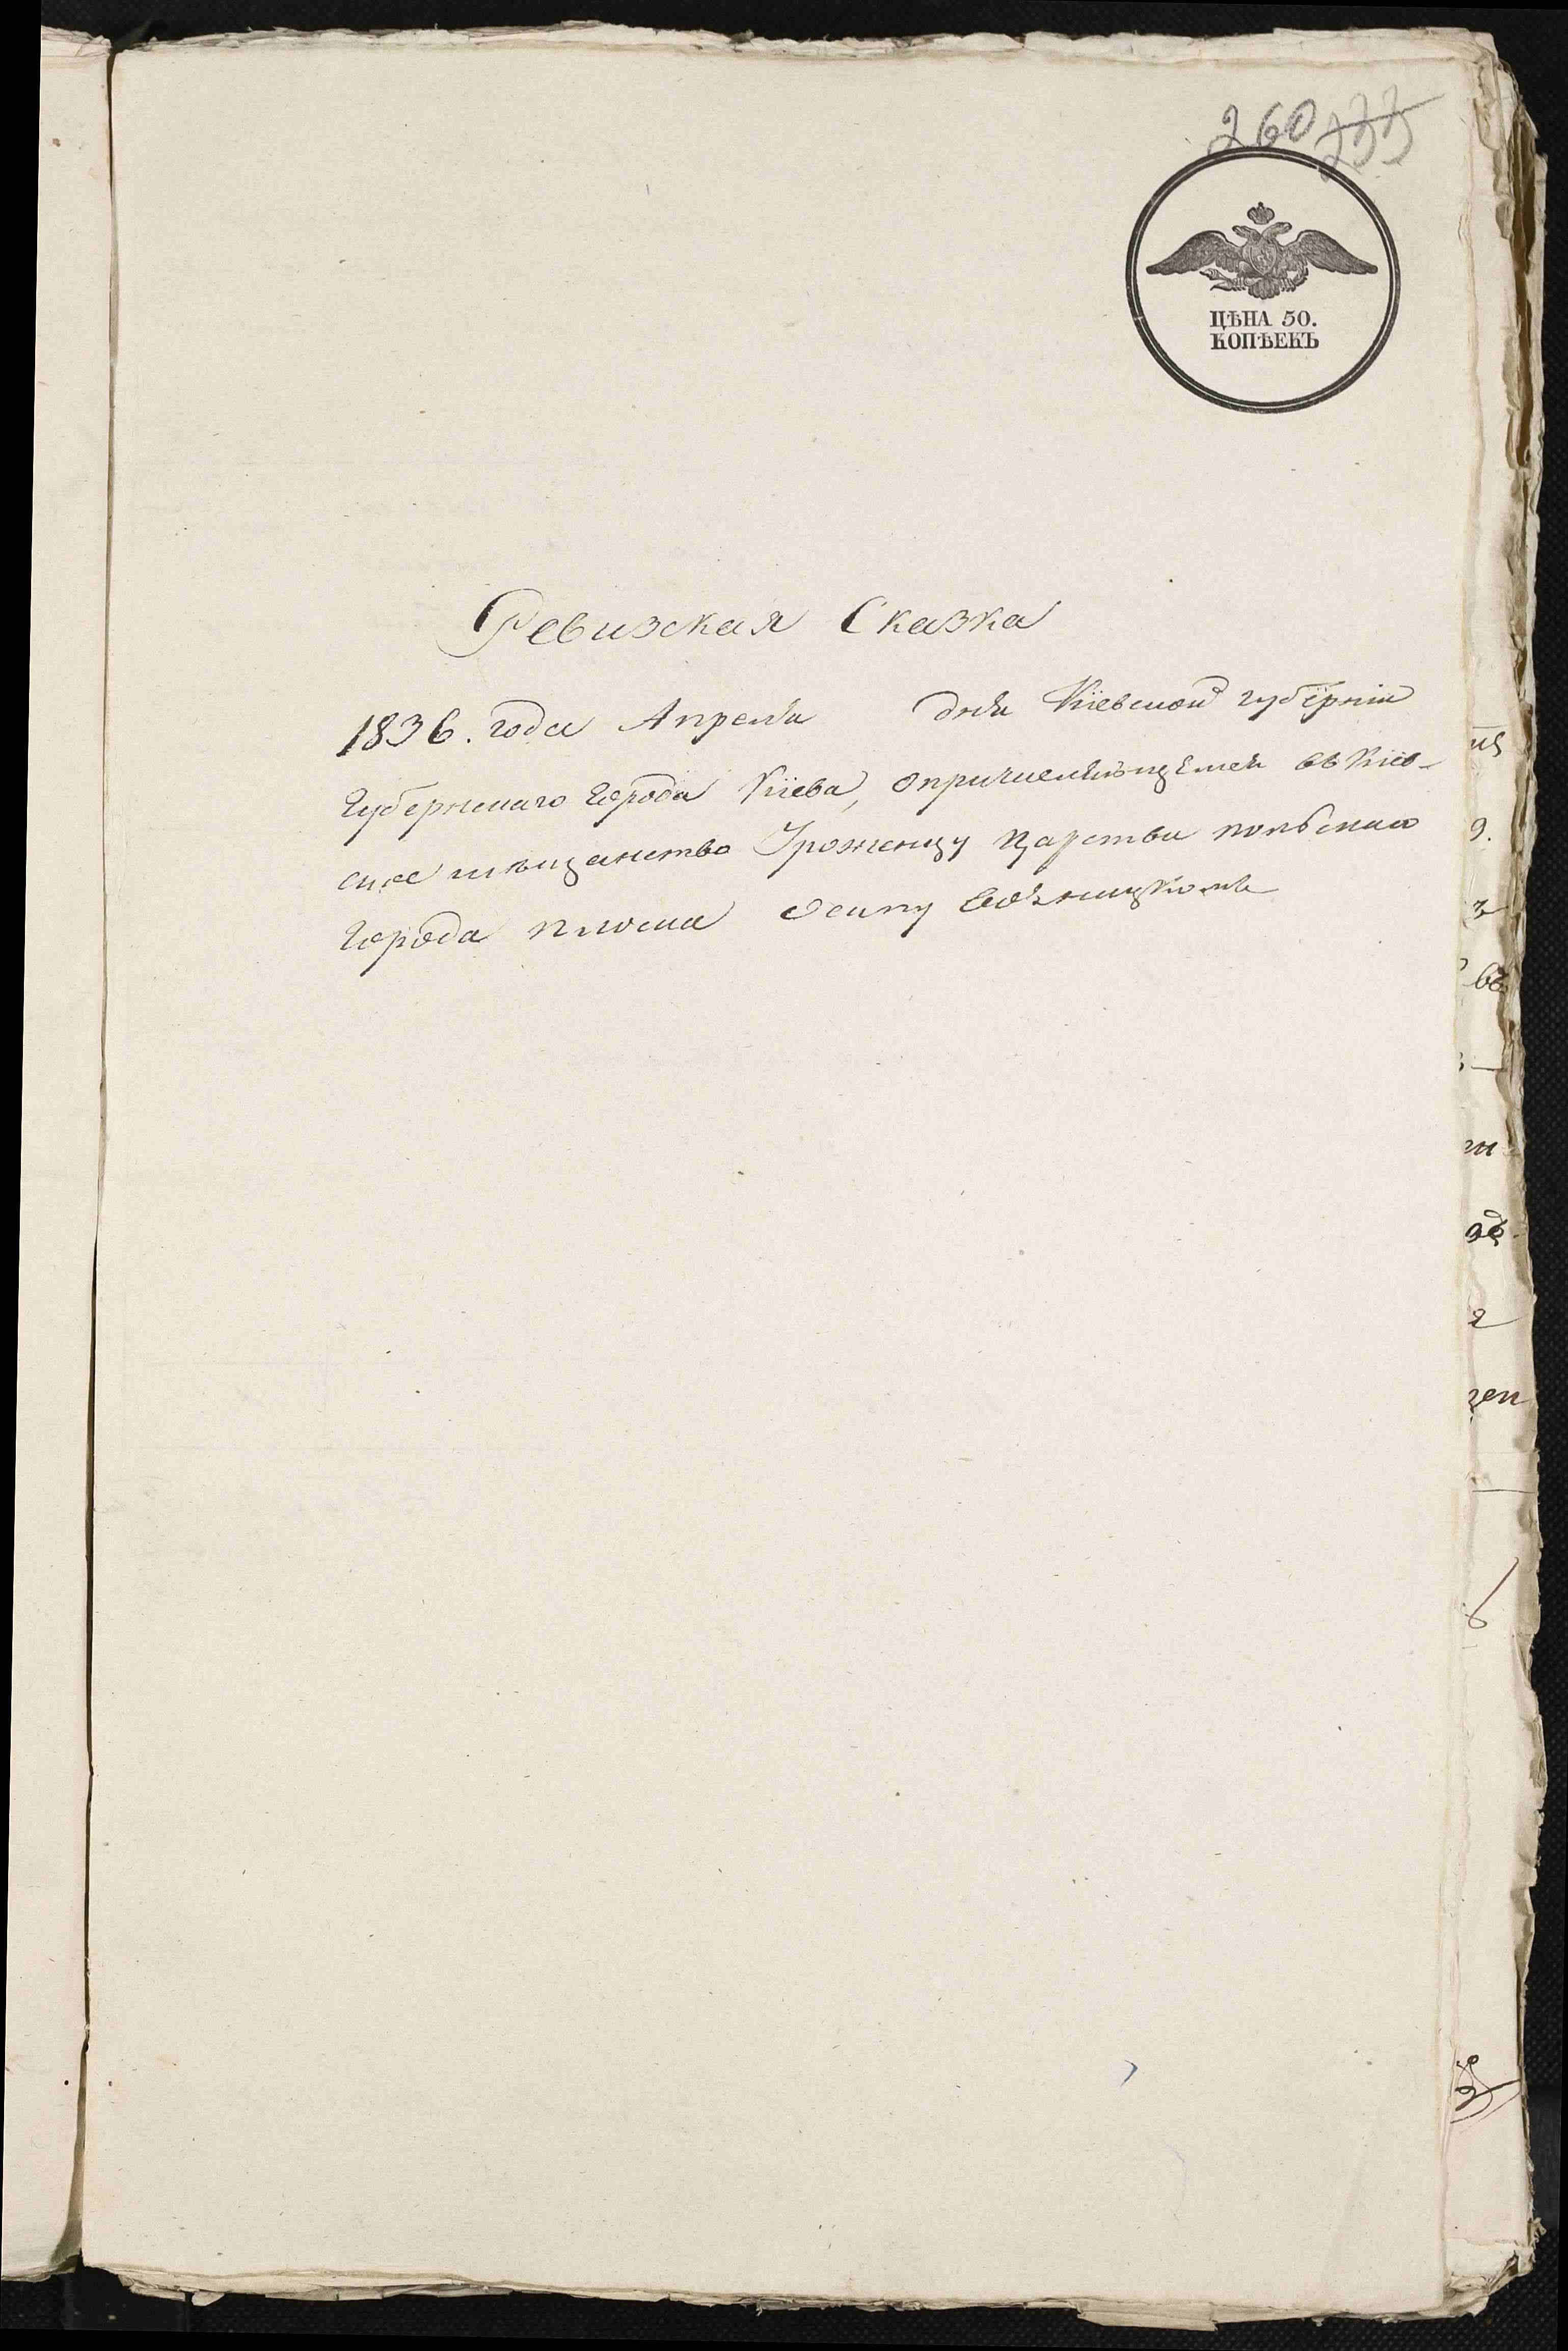 260 233
ЦѢНА 50.
КОПѢЕКЪ
Ревизская Сказка
1836. года Апреля дня Кіевской губерніи
Губернскаго города Кіева, опричисляющемся въ Кіев-
ское мѣщанство Уроженцу Царства польскаго
города плоцка Осипу